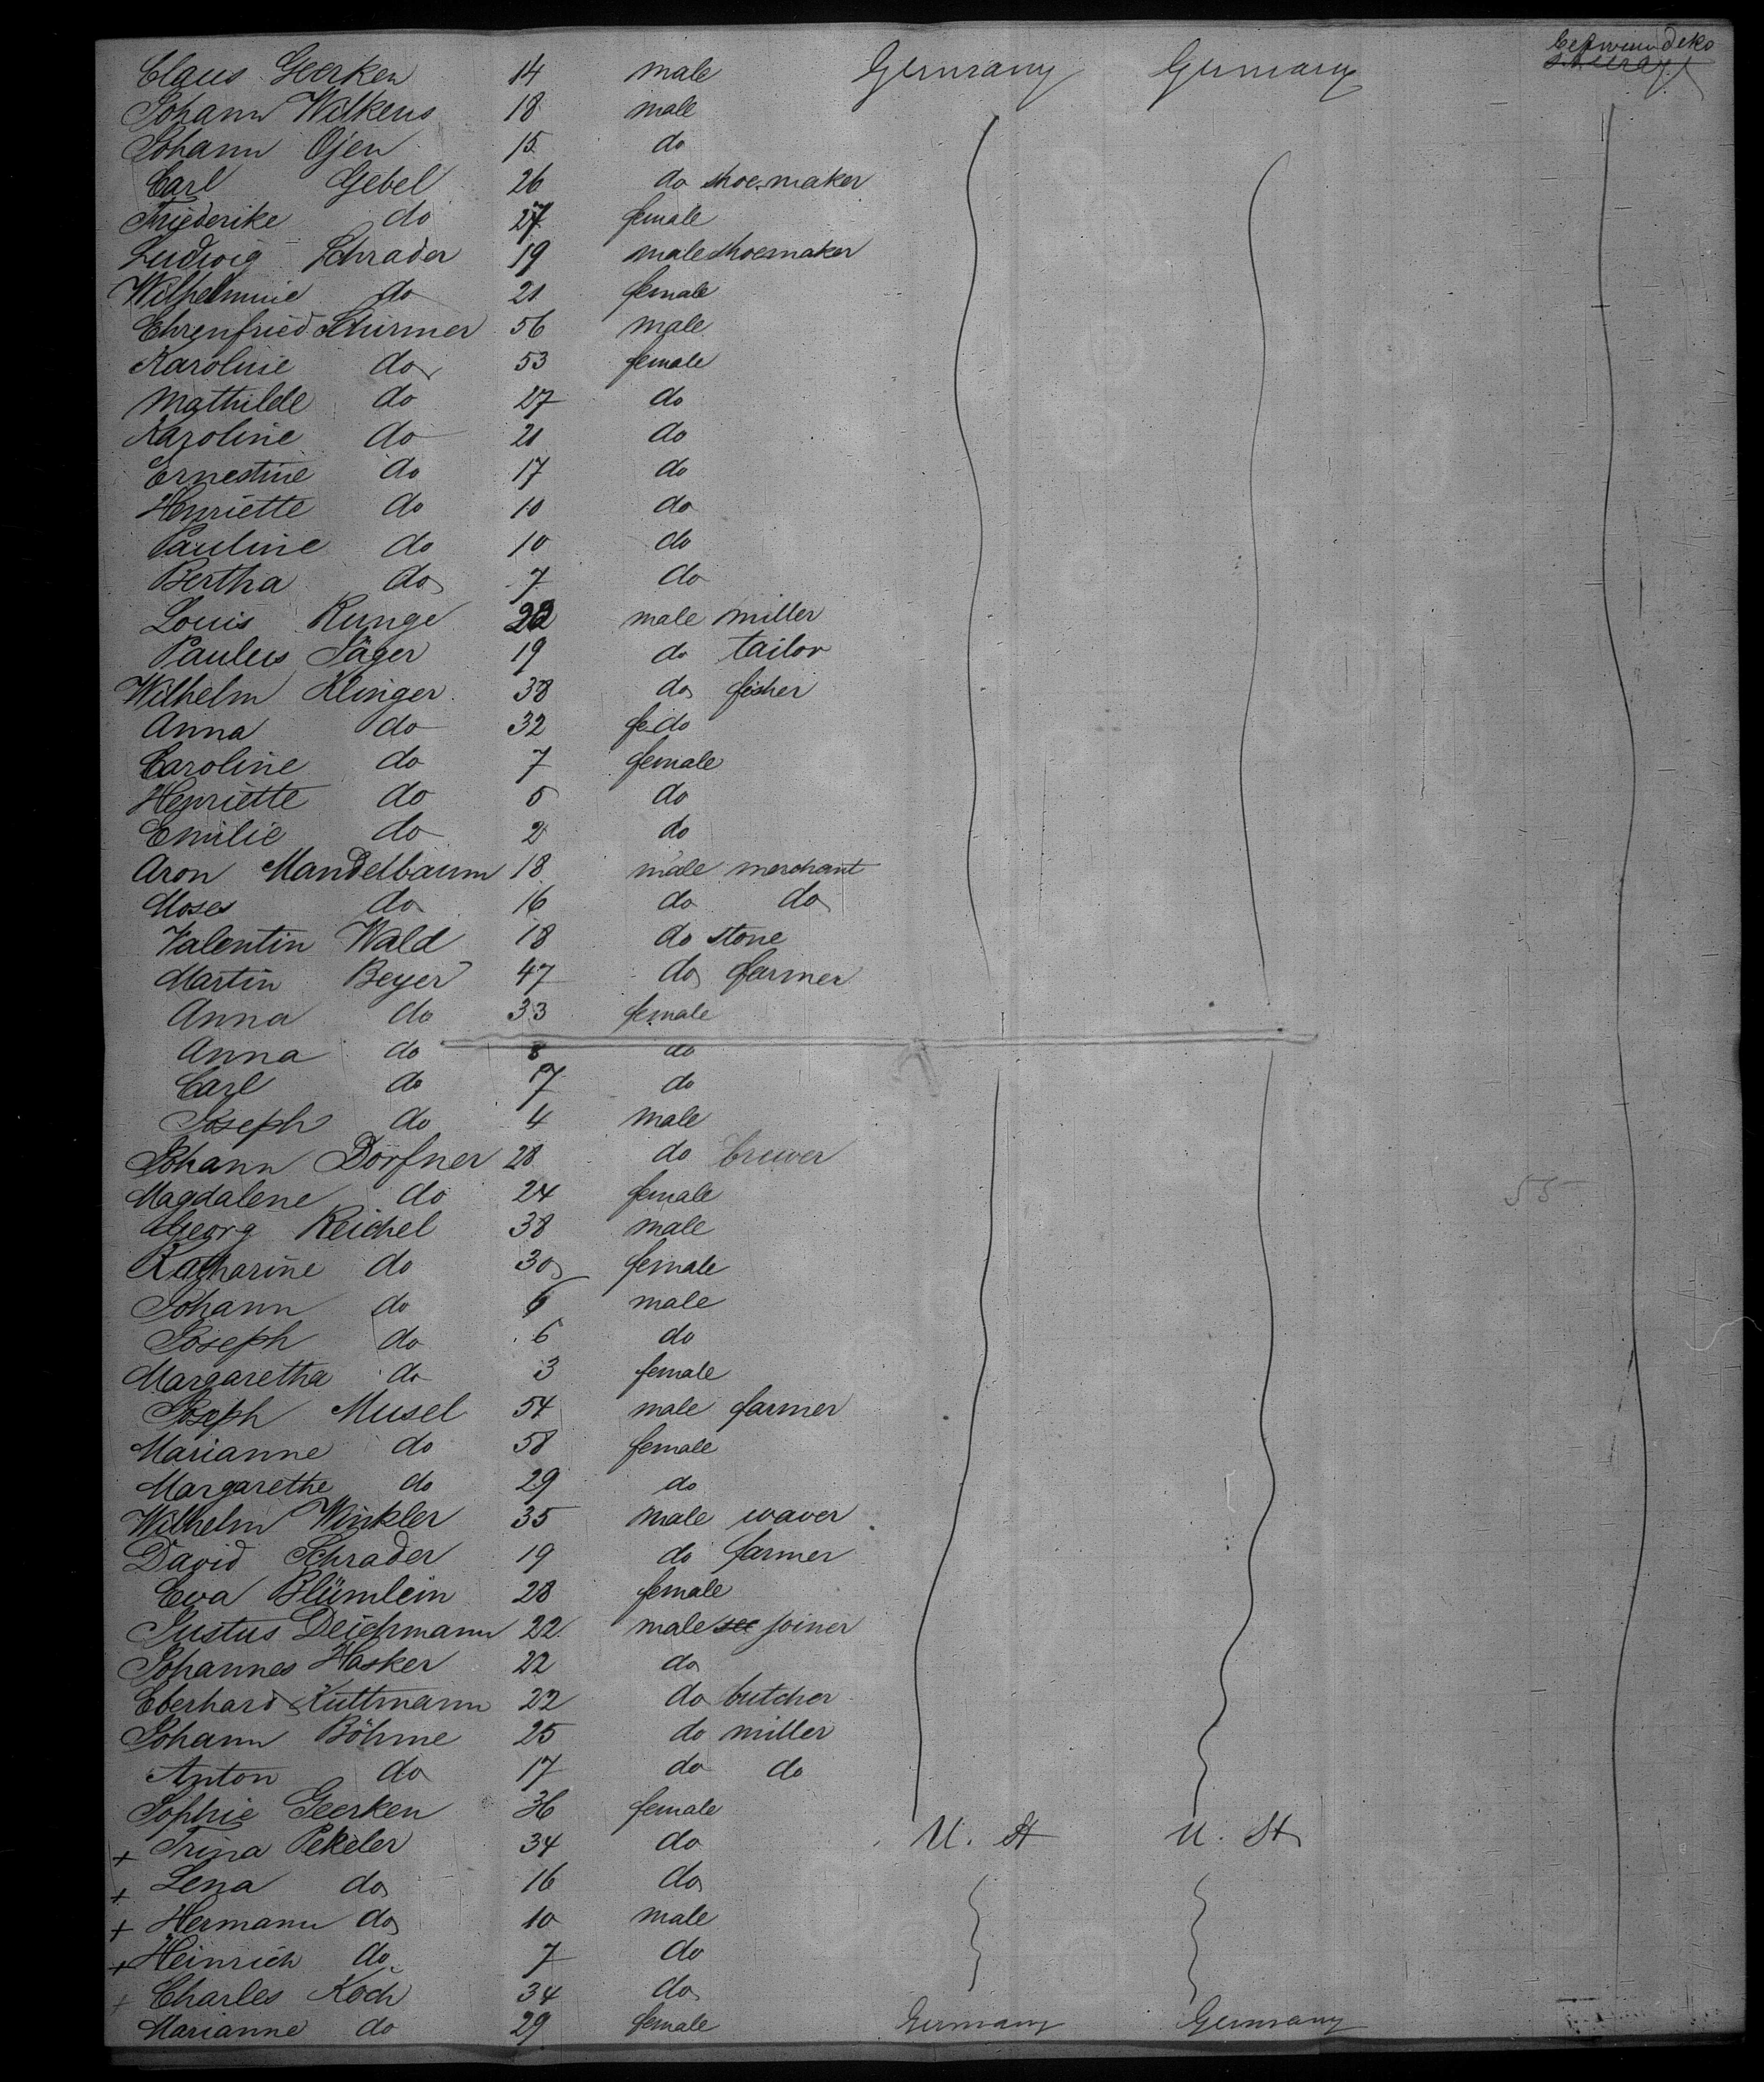 Claus Geerken 14 male Germany Germany between deks
Johann Wilkens 18 male
Johann Ojen 15 do
Carl Gebel 26 do shoe-maker
Friederike do 27 female
Ludwig Schrader 19 male shoemaker
Wilhelmine do 21 female
Ehrenfried Schirmer 56 male
Karoline do 53 female
Mathilde do 27 do
Karoline do 21 do
Ernestine do 17 do
Henriette do 10 do
Pauline do 10 do
Bertha do 7 do
Louis Runge 22 male miller
Paulus Jäger 19 do tailor
Wilhelm Klinger 38 do fisher
Anna do 32 fe do
Caroline do 7 female
Henriette do 5 do
Emilie do 2 do
Aron Mandelbaum 18 male merchant
Moses do 16 do do
Valentin Wald 18 do stone
Martin Beyer 47 do farmer
Anna do 33 female
Anna do 8 do
Carl do 7 do
Joseph do 4 male
Johann Dorfner 28 do brewer
Magdalene do 24 female
55
Georg Reichel 38 male
Katharine do 30 female
Johann do 6 male
Joseph do 6 do
Margaretha do 3 female
Joseph Musel 54 male farmer
Marianne do 58 female
Margarethe do 29 do
Wilhelm Winkler 35 male waver
David Schrader 19 do farmer
Eva Blümlein 28 female
Justus Deichmann 22 male joiner
Johannes Hasker 22 do
Eberhard Kuttmann 22 do butcher
Johann Böhme 25 do miller
Anton do 17 do do
Sophie Geerken 36 female
+ Trina Pekeler 34 do U. St U. St
+ Lena do 16 do
+ Hermann do 10 male
+ Heinrich do 7 do
+ Charles Koch 34 do
Marianne do 29 female Germany Germany